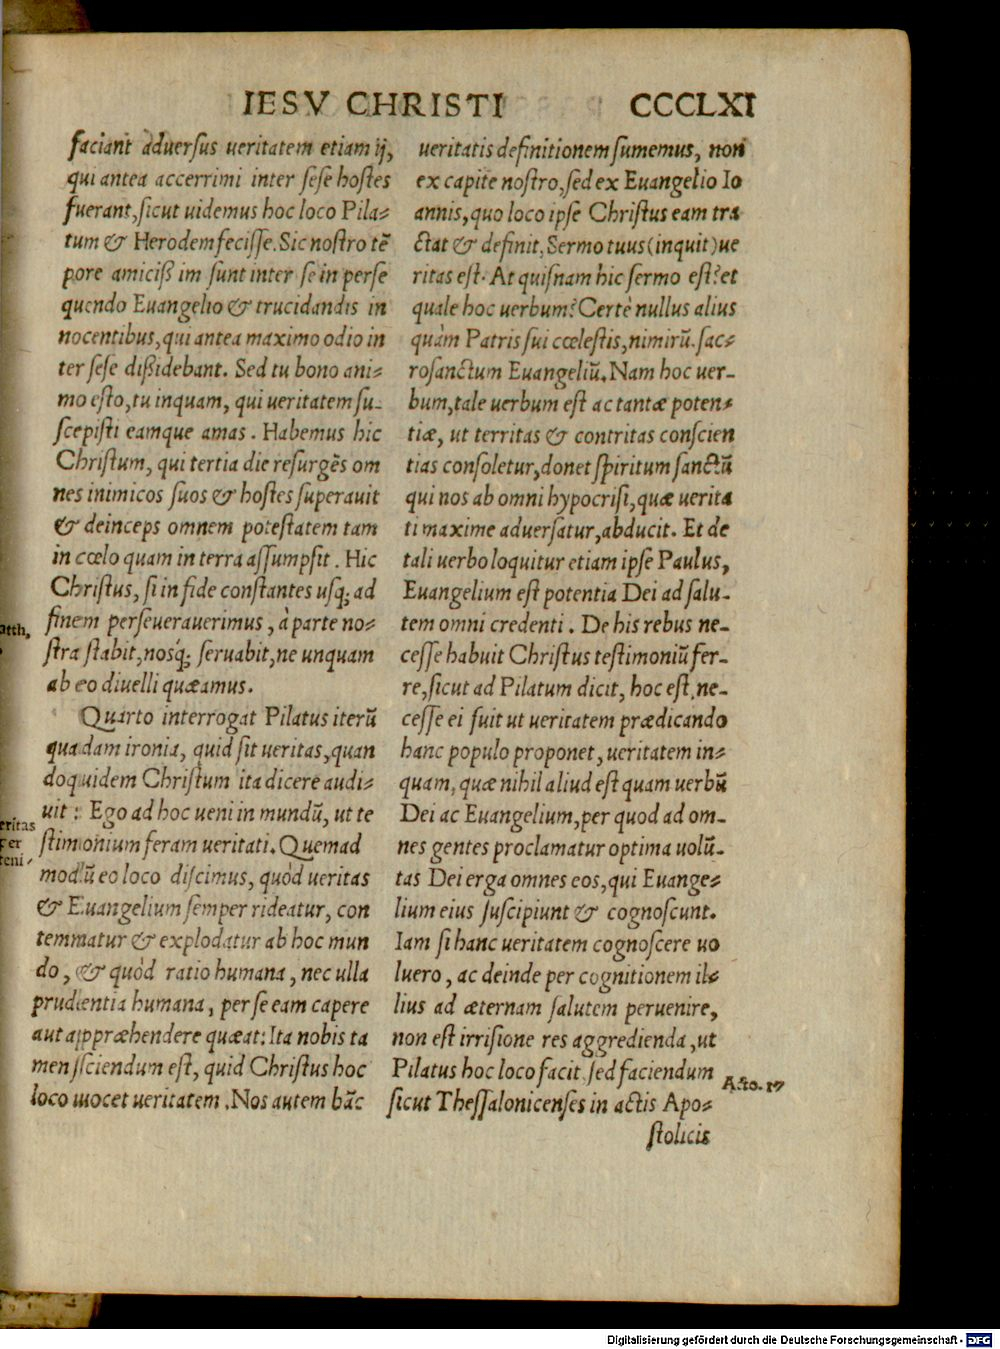 IESV CHRISTI CCCLXI
faciant aduersus ueritatem etiam ij,
qui antea accerrimi inter sese hostes
fuerant, sicut uidemus hoc loco Pila-
tum & Herodem fecisse. Sic nostro tē
pore amiciß im sunt inter se in perse
quendo Euangelio & trucidandis in
nocentibus, qui antea maximo odio in
ter sese dißidebant. Sed tu bono ani-
mo esto, tu inquam, qui ueritatem su-
scepisti eamque amas. Habemus hic
Christum, qui tertia die resurgēs om
nes inimicos suos & hostes superauit
& deinceps omnem potestatem tam
in cœlo quam in terra assumpsit. Hic
Christus, si in fide constantes usq; ad
finem perseuerauerimus, à parte no-
stra stabit, nosq́; seruabit, ne unquam
ab eo diuelli quæamus.
Quarto interrogat Pilatus iterū
quadam ironia, quid sit ueritas, quan
doquidem Christum ita dicere audi-
uit: Ego ad hoc ueni in mundū, ut te
stimonium feram ueritati. Quemad
modū eo loco discimus, quòd ueritas
& Euangelium semper rideatur, con
temnatur & explodatur ab hoc mun
do, & quòd ratio humana, nec ulla
prudentia humana, per se eam capere
aut appræhendere quæat: Ita nobis ta
men sciendum est, quid Christus hoc
loco uocet ueritatem. Nos autem hāc
atth,
eritas
per
teni-
ueritatis definitionem sumemus, non
ex capite nostro, sed ex Euangelio Io
annis, quo loco ipse Christus eam tra
ctat & definit, Sermo tuus (inquit) ue
ritas est. At quisnam hic sermo est? et
quale hoc uerbum? Certè nullus alius
quàm Patris sui cœlestis, nimirū. sac-
rosanctum Euangeliū. Nam hoc uer-
bum, tale uerbum est ac tantæ poten-
tiæ, ut territas & contritas conscien
tias consoletur, donet spiritum sanctū
qui nos ab omni hypocrisi, quæ uerita
ti maxime aduersatur, abducit. Et de
tali uerbo loquitur etiam ipse Paulus,
Euangelium est potentia Dei ad salu-
tem omni credenti. De his rebus ne-
cesse habuit Christus testimoniū fer-
re, sicut ad Pilatum dicit, hoc est, ne-
cesse ei fuit ut ueritatem prædicando
hanc populo proponet, ueritatem in-
quam, quæ nihil aliud est quam uerbū
Dei ac Euangelium, per quod ad om-
nes gentes proclamatur optima uolū-
tas Dei erga omnes eos, qui Euange-
lium eius suscipiunt & cognoscunt.
Iam si hanc ueritatem cognoscere uo
luero, ac deinde per cognitionem il-
lius ad æternam salutem peruenire,
non est irrisione res aggredienda, ut
Pilatus hoc loco facit, sed faciendum
sicut Thessalonicenses in actis Apo-
Acto. 17
stolicis
Digitalisierung gefördert durch die Deutsche Forschungsgemeinschaft - DFG